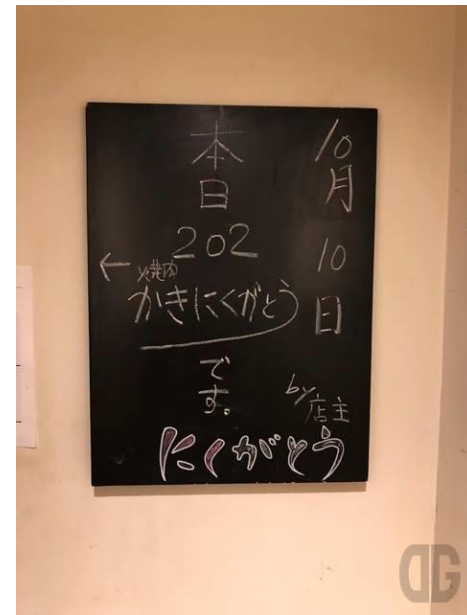 10月10日
本日
202
←焼肉
かきにくがとう
です。
by店主
にくがとう
DG